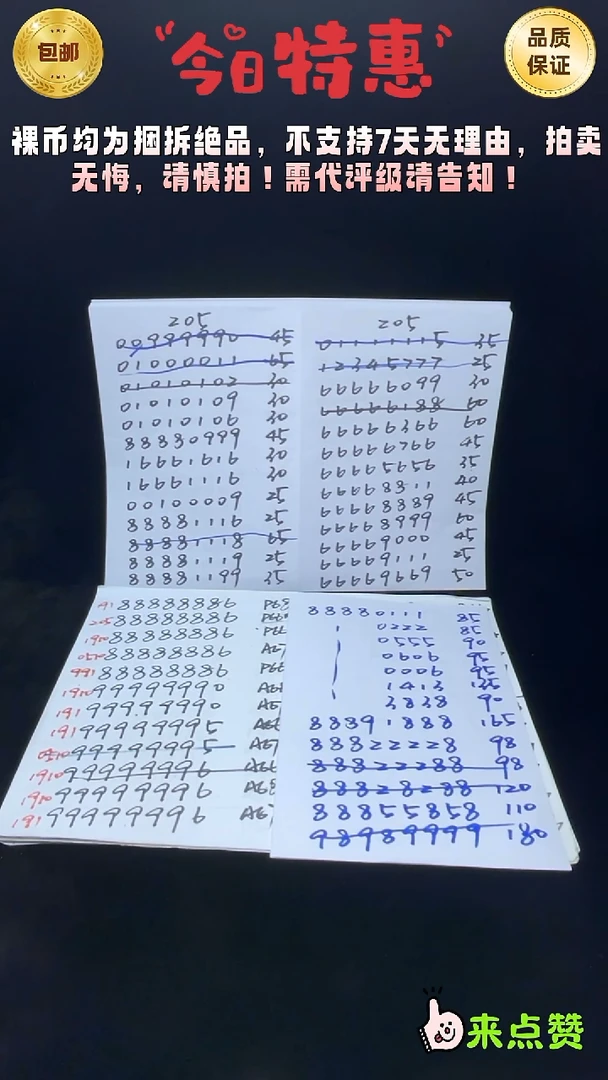 包邮
今日特惠
品质
保证
裸币均为捆拆绝品，不支持7天无理由，拍卖
无悔，请慎拍！需代评级请告知！
205
00999990 45
01000011 65
01010102 30
01010109 30
01010106 30
88880999 45
16661616 30
16661116 30
00100009 25
88881116 25
88881118 65
88881119 25
88881199 35
205
01111115 35
12345777 25
66666099 30
66666188 60
66666366 60
66666766 45
66665656 35
66668311 40
66668889 45
66668999 60
66669000 45
66669111 25
66669669 50
91 88888886
205 88888886
1980 88888886
0510 88888886
991 88888886
1910 99999990
191 99999990
191 99999995
0510 99999995
1910 99999996
1910 99999996
191 99999996
88880111 85
0222 85
0555 90
0606 95
0006 95
1413 135
3838 90
88391888 165
88822228 98
88822288 98
88828288 120
88855858 110
98989999 180
来点赞